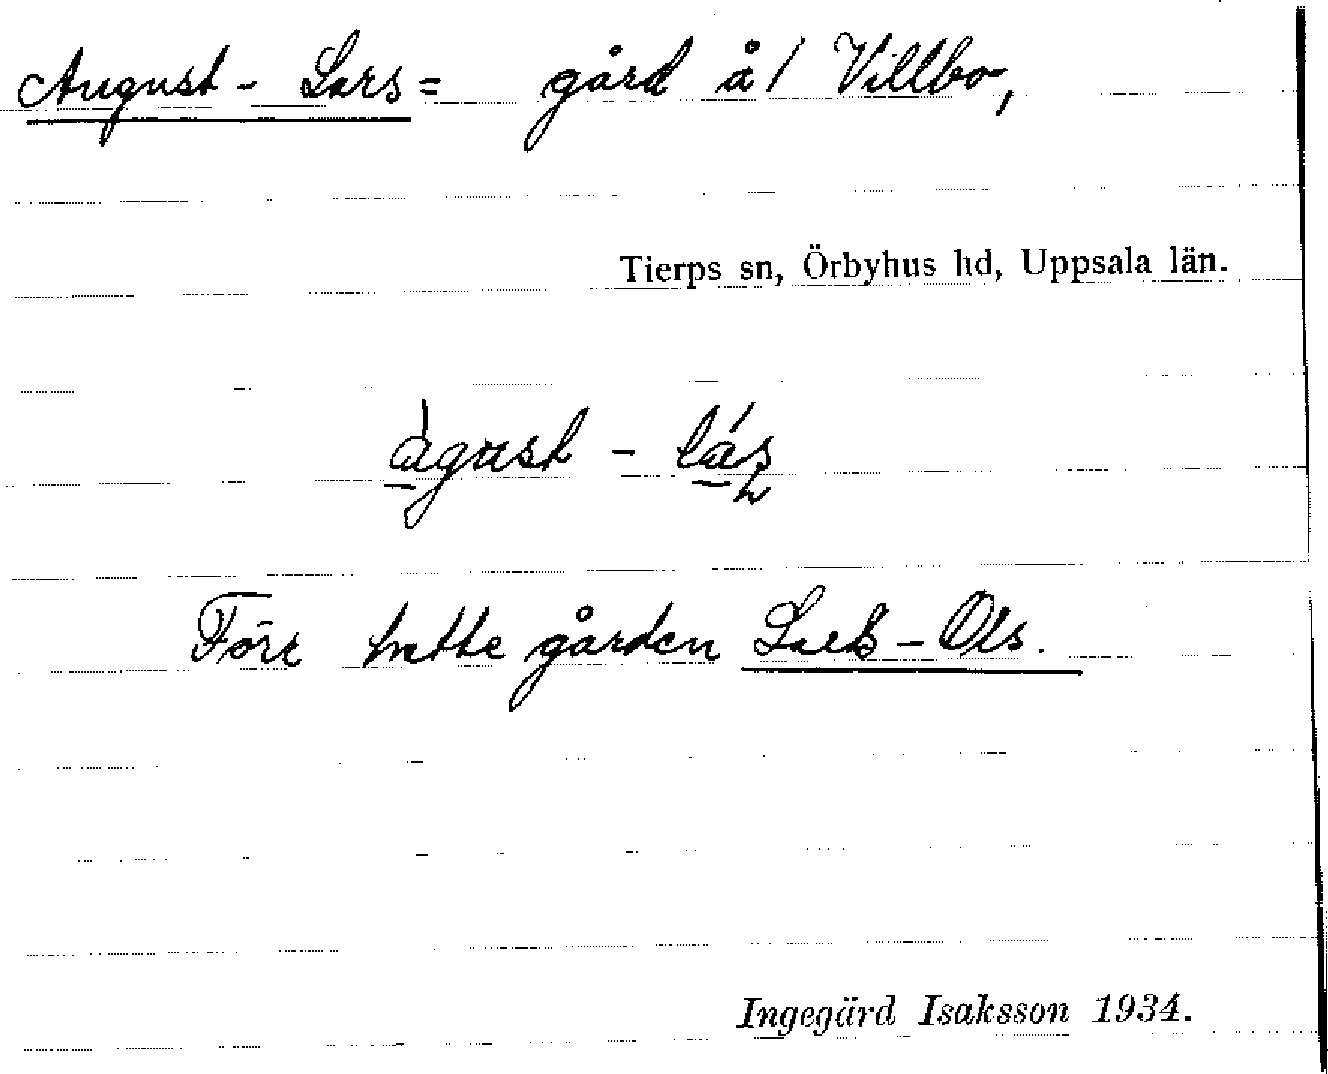 August - Lars = gård å / Villbo,
Tierps sn, Örbyhus hd, Uppsala län.
àgust - lás
Förr hette gården - Ols.
Ingegärd Isaksson 1934.